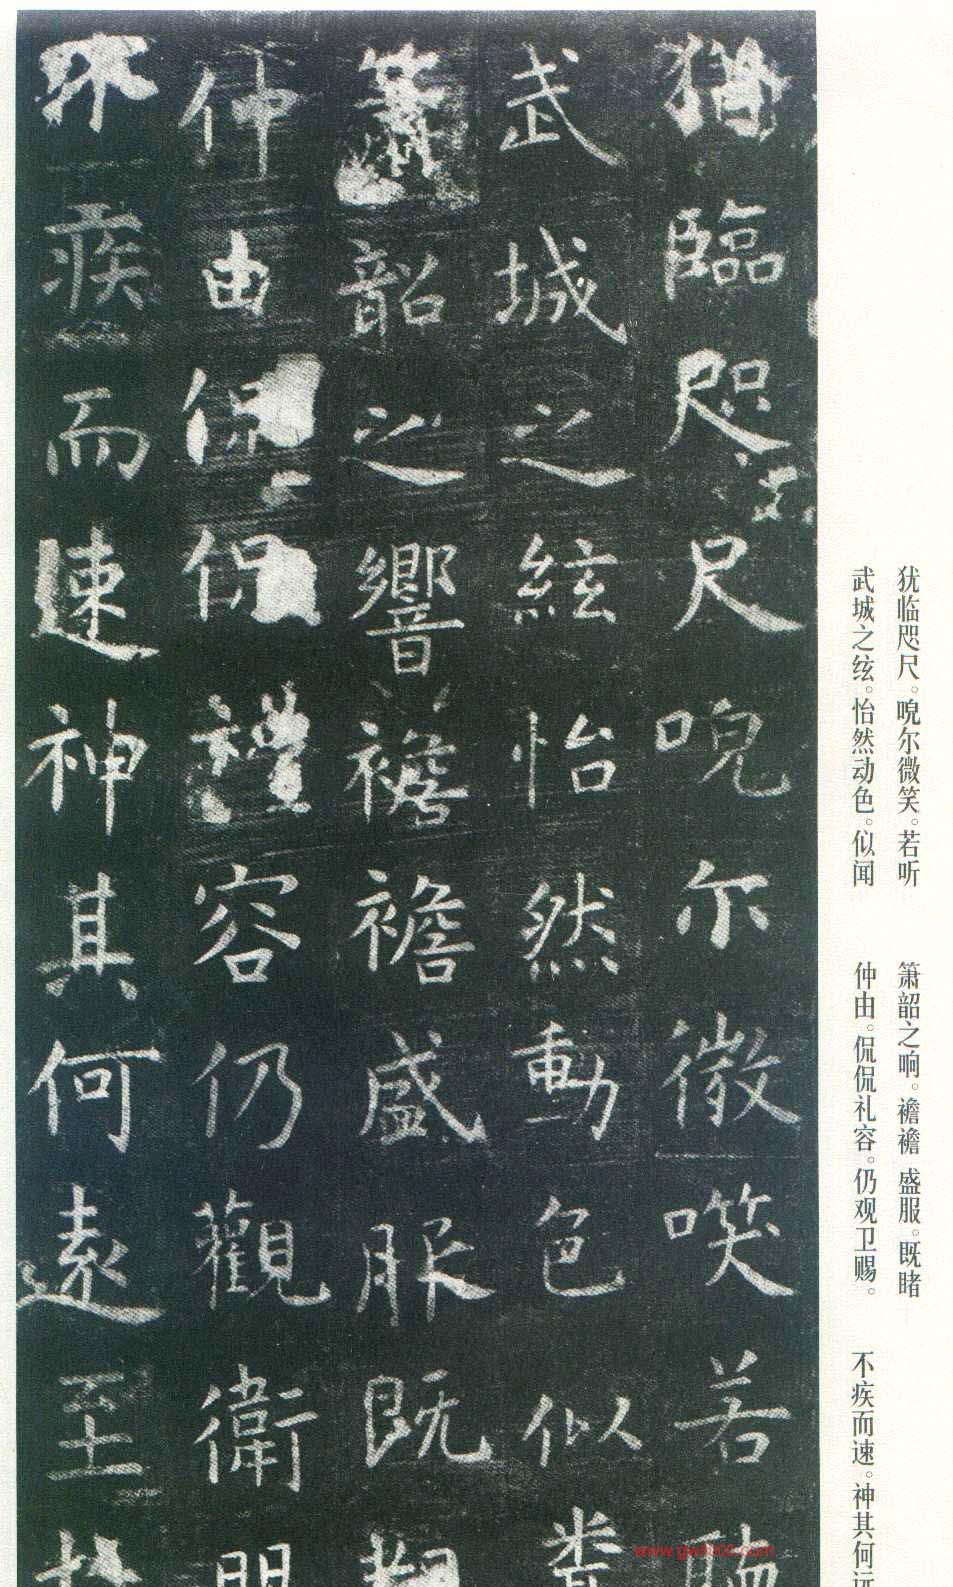 猶臨咫尺唲尔微咲若聽
武城之絃怡然動色似
蕭韶之響襜襜盛服既睹
仲由侃侃禮容仍觀衛
不疾而速神其何遠至於
犹临咫尺。唲尔微笑。若听
武城之纮。怡然动色。似闻
箫韶之响。襜襜盛服。既睹
仲由。侃侃礼容。仍观卫赐。
不疾而速。神其何远